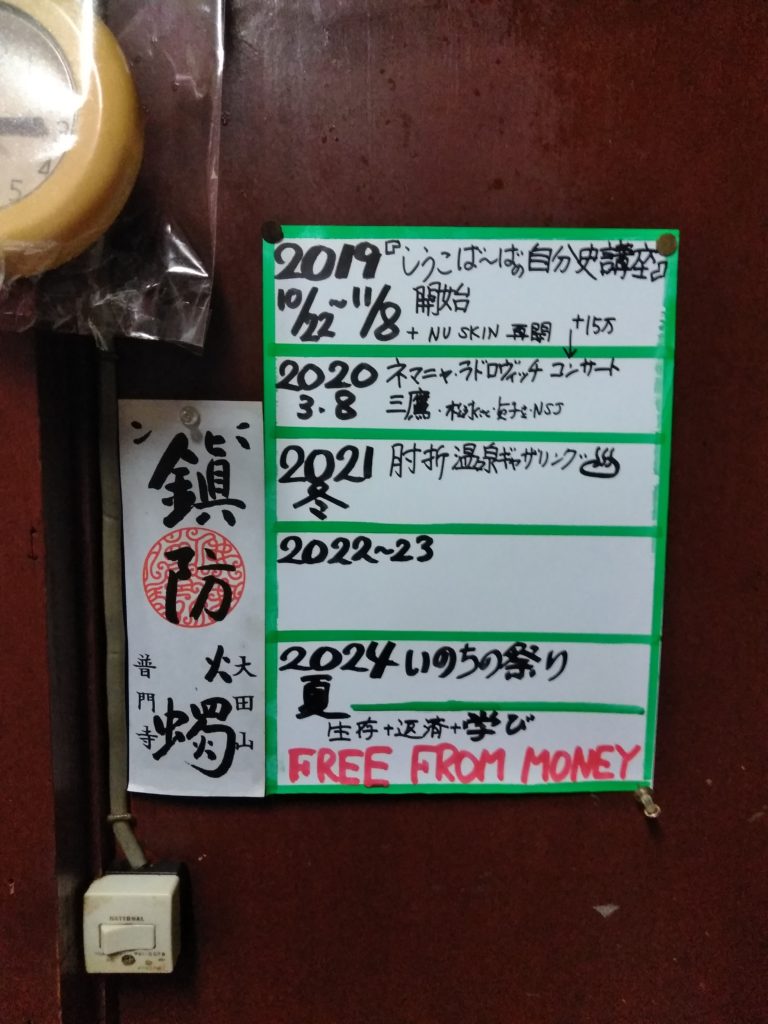 3
4
5
2019『しうこば〜ばの自分史講座』
10/22〜11/8 開始
+ NU SKIN 再開 +15万
2020 ネマニャ・ラドロヴィッチ コンサート
3.8 三鷹・NSJ
2021 肘折温泉ギャザリング♨
冬
2022〜23
2024 いのちの祭り
夏
生存+返済+学び
FREE FROM MONEY
鎮
防
火
燭
大田山
普門寺
NATIONAL